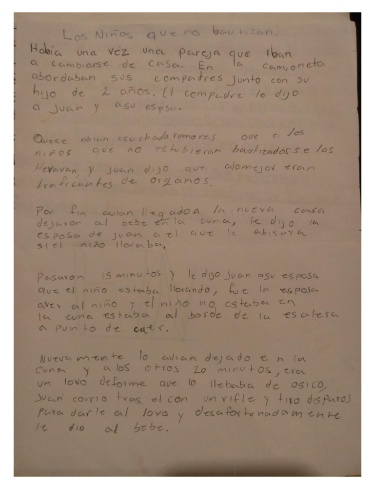 Los Niños que no bautizan.
Había una vez una pareja que iban
a cambiarse de casa. En la camioneta
abordaban sus compadres junto con su
hijo de 2 años. El compadre le dijo
a Juan y asu esposa.
Quese abian escuchado romores que a los
niños que no estubieran bautizados se los
llevavan y juan dijo que alomejor eran
traficantes de organos.
Por fin avian llegado a la nueva casa
dejaron al bebe en la cuna, le dijo la
esposa de juan a el que le abisara
si el niño lloraba.
Pasaron 15 minutos y le dijo Juan asu esposa
que el niño estaba llorando, fue la esposa
aver al niño y el niño no estaba en
la cuna estaba al borde de la escalera
a punto de caer.
Nuevamente lo avian dejado en la
cuna y alos otros 20 minutos, era
un lovo deforme que lo llebaba de osico,
Juan corrio tras el con un rifle y tiro disparos
para darle al lovo y desafortunadamente
le dio al bebe.